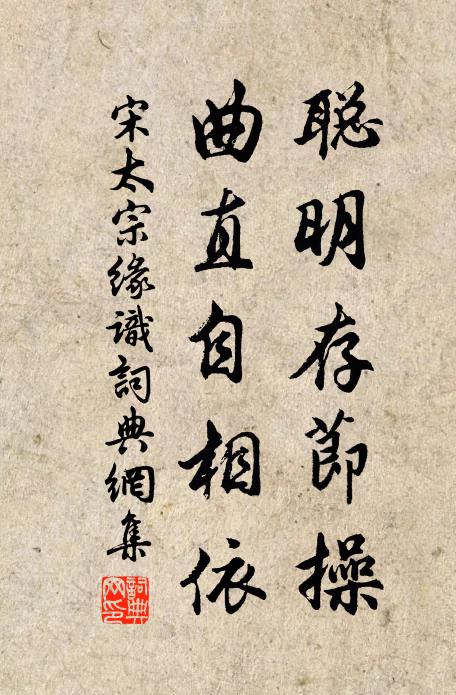 聡明存莭操
曲直自相依
宋太宗緣識詞典網集
詞典网印